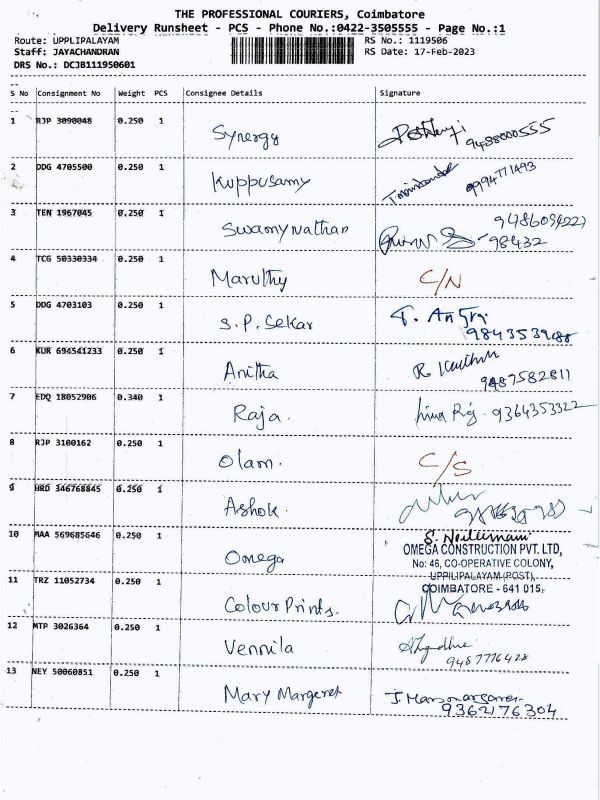 THE PROFESSIONAL COURIERS, Coimbatore
Delivery Runsheet - PCS - Phone No.:0422-3505555 - Page No.:1
Route: UPPLIPALAYAM RS No.: 1119506
Staff: JAYACHANDRAN RS Date: 17-Feb-2023
DRS No.: DCJB111950601
S No Consignment No Weight PCS Consignee Details Signature
1 RJP 3090048 0.250 1 Synergy 9488000555
2 DDG 4705500 0.250 1 Kuppusamy 9994771493
3 TEN 1967045 0.250 1 Swamynathan
98432
4 TCG 50330334 0.250 1 Maruthy C/N
5 DDG 4703103 0.250 1 S.P. Sekar
6 KUR 694541233 0.250 1 Anitha
9487582811
7 EDQ 18052906 0.340 1 Raja. 9364353322
8 RJP 3100162 0.250 1 Olam. C/S
9 HRD 346768845 0.250 1 Ashok.
10 MAA 569685646 0.250 1 Omega
OMEGA CONSTRUCTION PVT. LTD,
No: 46, CO-OPERATIVE COLONY,
UPPILIPALAYAM (POST),
COIMBATORE - 641 015.
11 TRZ 11052734 0.250 1 Colour Prints.
12 MTP 3026364 0.250 1 Vennila
9487776428
13 NEY 50060851 0.250 1 Mary Margeret
9362176304